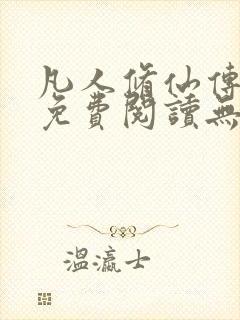 凡人脩仙傳
免費閱讀無
溫瀛士